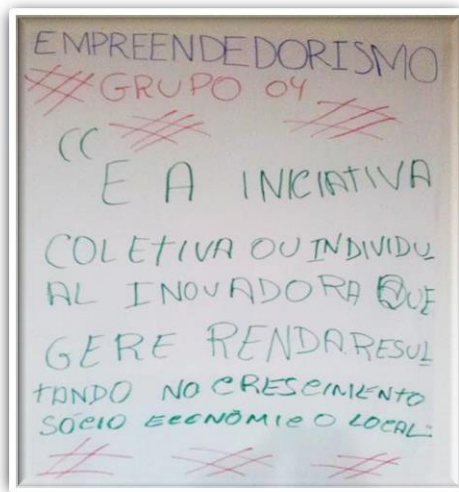 EMPREENDEDORISMO
GRUPO 04
“
E A INICIATIVA
COLETIVA OU INDIVIDU
AL INOVADORA QUE
GERE RENDA RESUL
TANDO NO CRESCIMENTO
SÓCIO ECONÔMICO LOCAL.